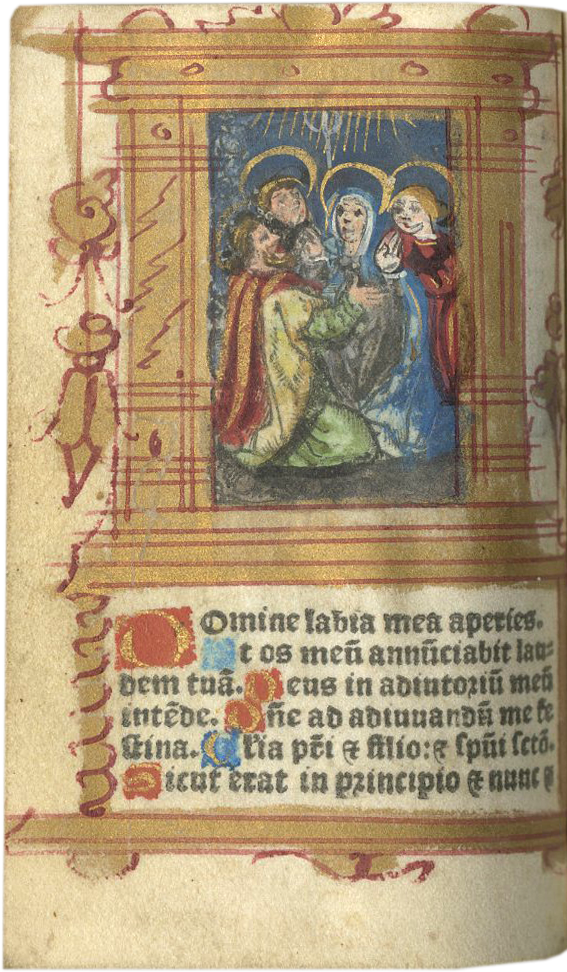 DOmine labia mea aperies.
Et os meū annūciabit lau⸗
dem tuā. Deus in adiutoriū meū
intēde. Dn̄e ad adiuuandū me fe
stina. Gl̄ia pr̄i ⁊ filio: ⁊ spūi sctō.
Sicut erat in principio ⁊ nunc ⁊